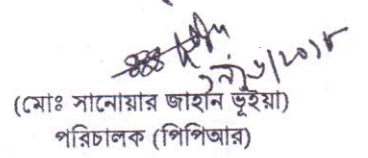 (মোঃ সানোয়ার জাহান ভূইয়া)
পরিচালক (পিপিআর)